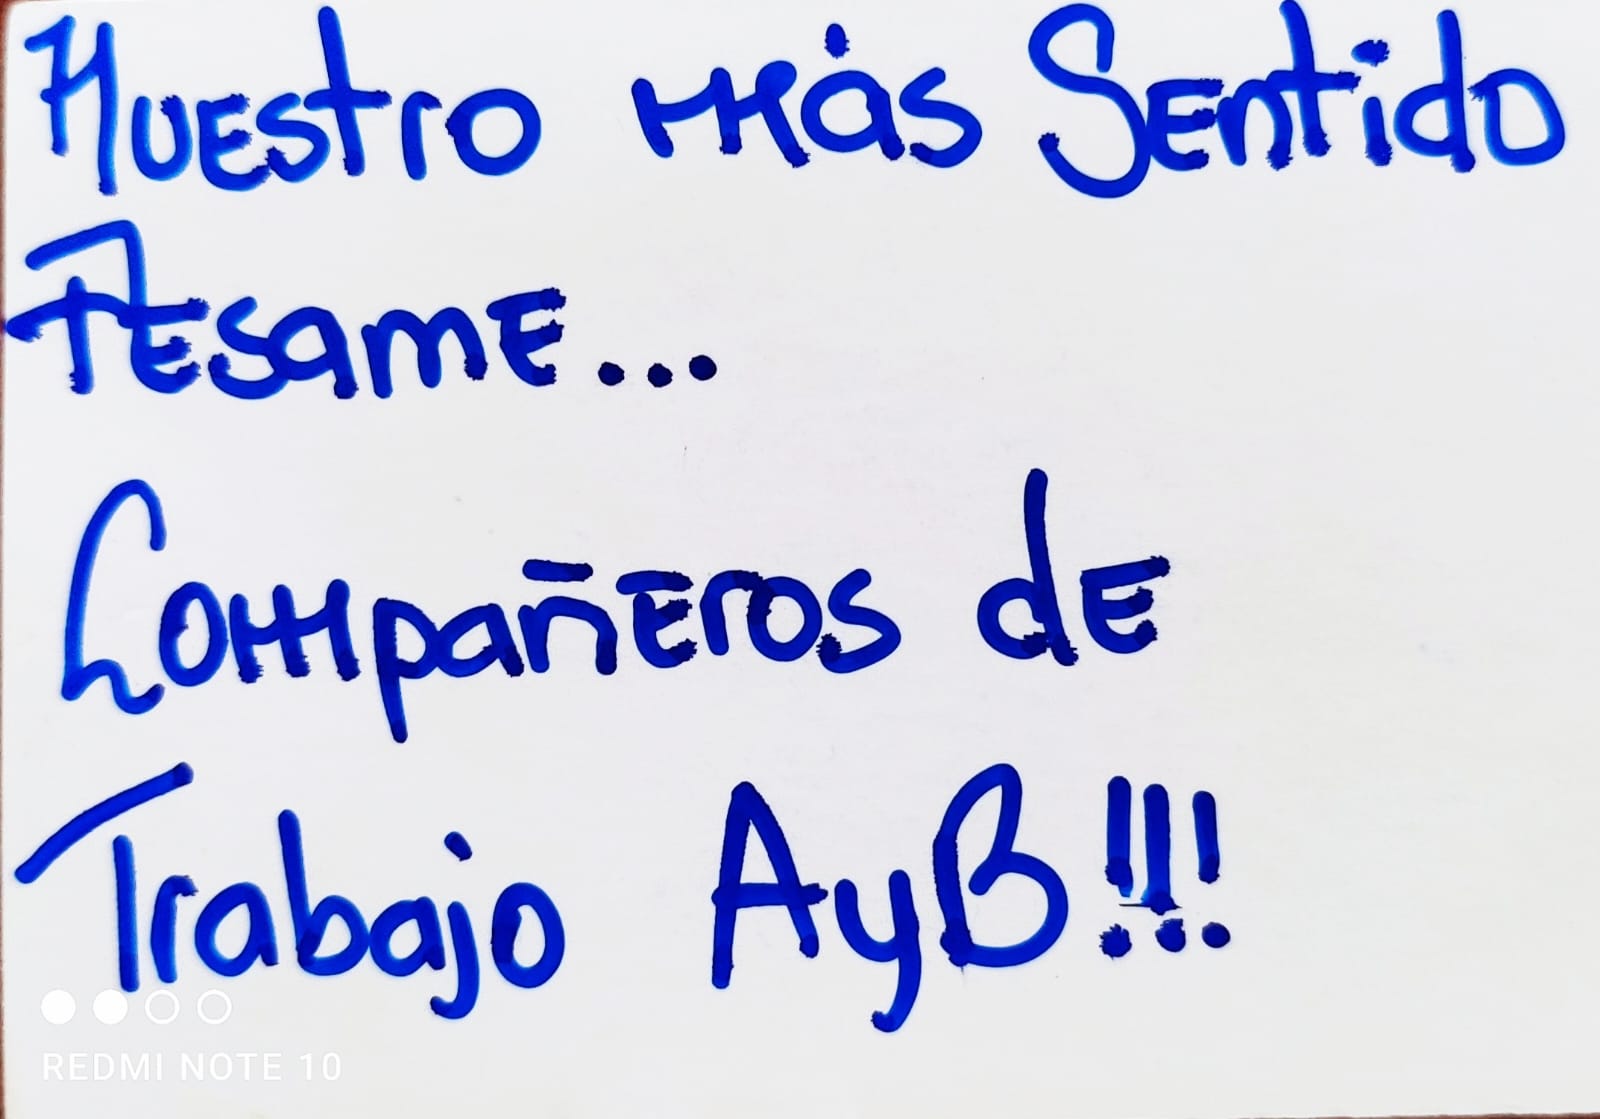 Nuestro más Sentido
Pesame...
Compañeros de
Trabajo AyB!!!
REDMI NOTE 10